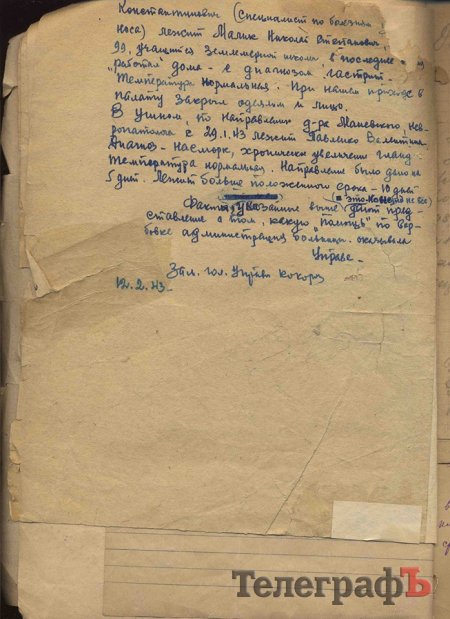 Константинович (специалист по болезням
носа) лежит Малик Николай Степанович,
99, учащийся землемерной школы в последнее
"работал" дома - с диагнозом гастрит.
Температура нормальная. При нашем приходе в
палату закрыл одеялом и лицо.
В ушном, по направлению д-ра Маневского, нев-
ропатолога с 29.1.43 лежит Павленко Валентина
Диагноз - насморк, хроническ увеличение гланд
Температура нормальная. Направление было дано на
5 дней. Лежит больше положенного срока - 10 дней
(и это не все)
Факты, указанные выше дают пред-
ставление о том, какую "помощь" по вер-
бовке администрация больницы оказывала
Управе.
Зам. гол. Управи
12.2.43.
ТелеграфЪ